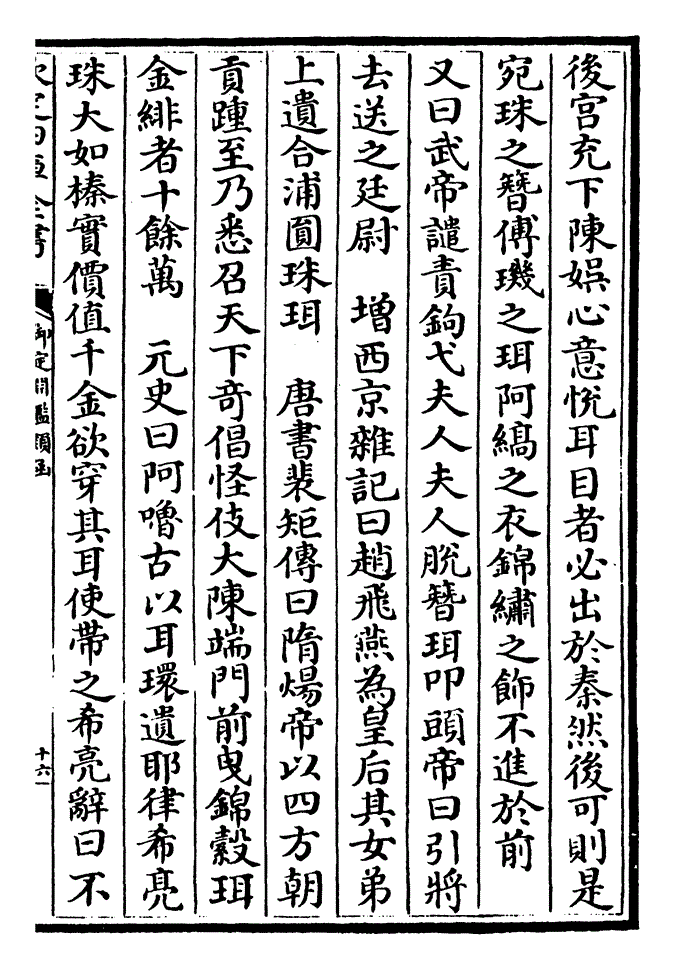 後宮充下陳娯心意悅耳目者必出於秦然後可則是
宛珠之簪傅璣之珥阿縞之衣錦繡之飾不進於前
又曰武帝譴責鉤弋夫人夫人脫簪珥叩頭帝曰引將
去送之廷尉　増西京雜記曰趙飛燕為皇后其女弟
上遺合浦圓珠珥　唐書裴矩傳曰隋煬帝以四方朝
貢踵至乃悉召天下竒倡怪伎大陳端門前曳錦縠珥
金緋者十餘萬　元史曰阿嚕古以耳環遺耶律希亮
珠大如榛實價值千金欲穿其耳使帶之希亮辭曰不
御定淵鑑類函
十六